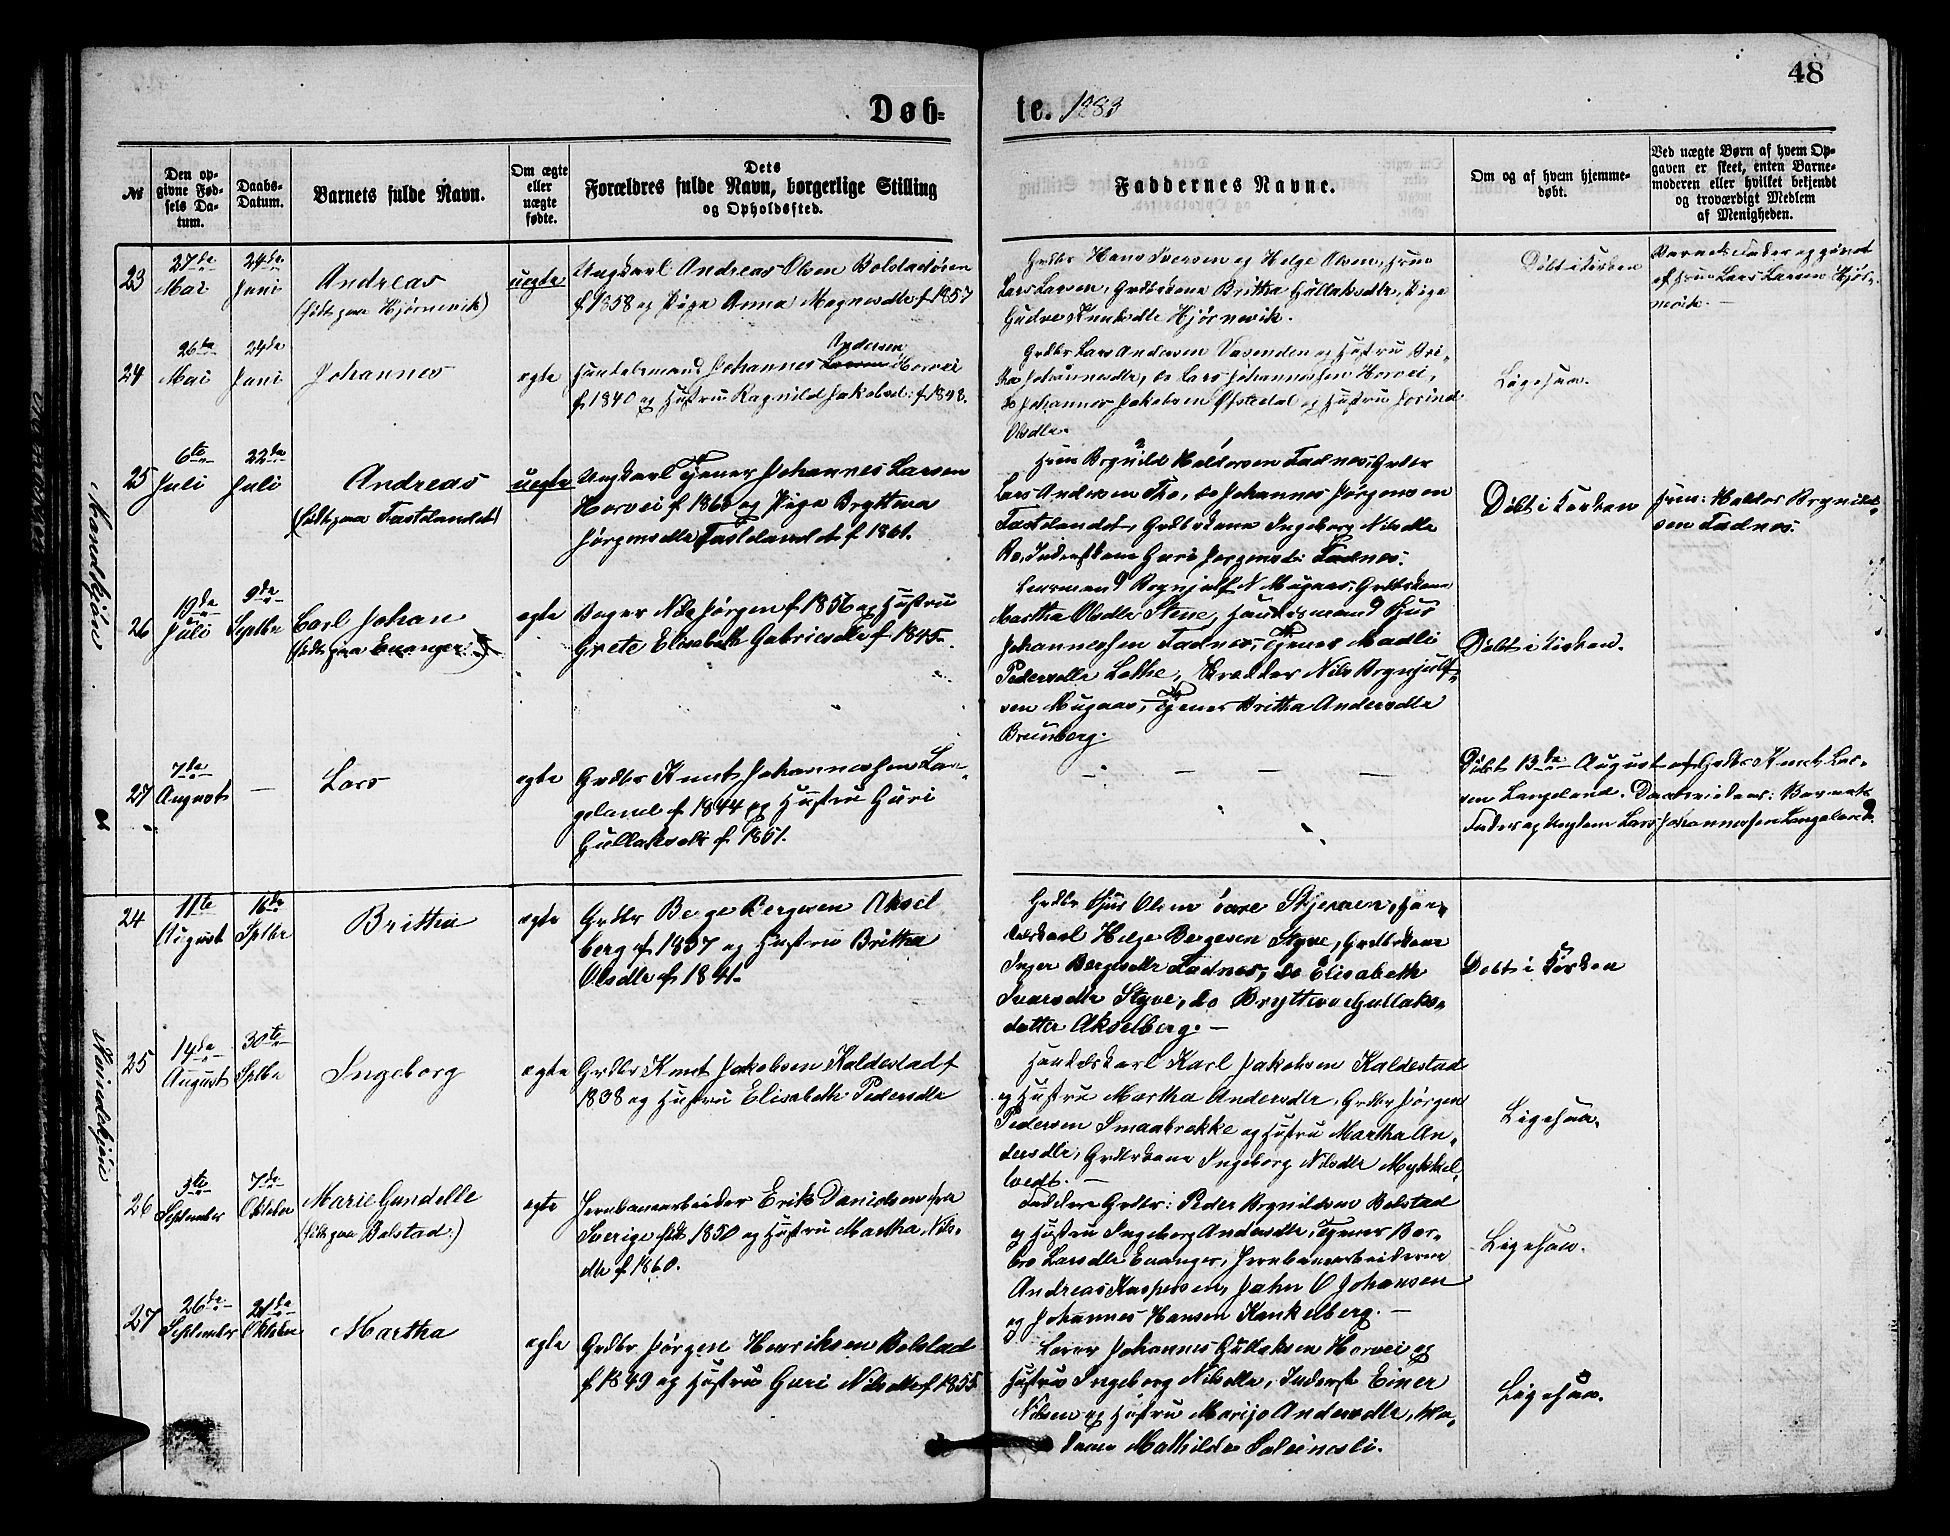 48
Døb-
te. 1883
№
Den op-
givne Fød-
sels Da-
tum.
Daabs-
Datum.
Barnets fulde Navn.
Om ægte
eller
uægte
fødte.
Dets
Forældres fulde Navn, borgerlige Stilling
og Opholdssted.
Faddernes Navne.
Om og af hvem hjemme-
døbt.
Ved uægte Børn af hvem Op-
gaven er skeet, enten Barne-
moderen eller hvilket bekjendt
og troværdigt Medlem
af Menigheden.
Mandkjøn
23
27de
Mai
24de
Juni
Andreas
(født paa Hjørnevik)
uegte
Ungkarl Andreas Olsen Bolstadøren
f. 1858 og Pige Anna Magnesdtr f. 1857
Grdbr Hans Iversen og Helge Olsen,
Lars Larsen, Grdbrkone Brittha Gullaksdtr, Pige
Gudve Knutsdtr Hjørnevik.
Døbt i Kirken
Barnets Fader og
af Lars Larsen Hjør-
nevik.
24
26de
Mai
24de
Juni
Johannes
egte
Huusmand Johannes Larsen Andersen Horvei
f. 1840 og Hustru Ragnild Jakobsd: f. 1848.
Grdbr Lars Andersen Vasenden og Hustru Bri-
tha Johannesdtr, do Lars Johannessen Horvei,
do Johannes Jakobsen Øfstedal og Hustru
Olsdtr.
Ligesaa.
25
6te
Juli
22de
Juli
Andreas
(født paa Fastlandet)
uegte
Ungkarl Tjener Johannes Larsen
Horvei f. 1860 og Pige Brytteva
Jørgensdtr Fastlandet f. 1861.
Brynild Haldorsen Fadnes, Grdbr
Lars Andersen Tho, do Johannes Jørgensen
Fastlandet, Grdbrkone Ingeborg Nilsdtr
Bø, Inderstkone Guri Jørgensd: Fadnes.
Døbt i Kirken
Haldor Brynild-
sen Fadnes.
26
19de
Juli
9de
Septbr
Carl Johan
(født paa Evanger:)
egte
Bager Nils Jørgen f. 1856 og Hustru
Grete Elisabeth Gabrielsdtr f. 1845.
Leensmand Brynjulf N Mugaas, Grdbrkone
Martha Olsdtr Stene, Handelsmand Sjur
Johannessen Fadnes, Tjener Madli
Pedersdtr Lothe, Skrædder Nils Brynjulf-
sen Mugaas, Tjener Brittha Andersdtr
Brunborg.
Døbt i Kirken.
27
7de
August
—
Lars
egte
Grdbr Knut Johannessen Lan-
geland f. 1844 og Hustru Guri
Gullaksdtr f. 1861.
— — — —
Døbt 13de August af Grdbr Knut Lar-
sen Langeland. Daabsvidner: Barnets
Fader og Ungkarl Lars Johannessen Langeland.
Kvindekjøn
24
11te
August
16de
Septbr
Brittha
egte
Grdbr Berge Bergesen Aksel
berg f. 1837 og Hustru Brittha
Olsdtr f. 1841.
Grdbr Sjur Olsen øvre Skjerven,
Helge Bergesen Styve, Grdbrkone
Inger Bergesdtr Fadnes, do Elisabeth
Ivarsdtr Styve, do Brytteva Gullaks-
datter Akselberg. —
Døbt i Kirken
25
14de
August
30te
Septbr
Ingeborg
egte
Grdbr Knut Jakobsen Kaldestad f.
1838 og Hustru Elisabeth Pedersdtr
Handelskarl Karl Jakobsen Kaldestad
og Hustru Martha Andersdtr, Grdbr Jørgen
Pedersen Smaabrekke og Hustru Martha An-
dersdtr, Grdbrkone Ingeborg Nilsdtr Mykkel
tvedt. —
Ligesaa.
26
3te
September
7de
Oktober
Marie Gundelle
(født paa Bolstad:)
egte
Jernbanearbeider Erik Danielsen fra
Sverige født 1850 og Hustru Martha Nils-
dtr f. 1860.
Faddere Grdbr: Peder Brynildsen Bolstad
og Hustru Ingeborg Andersdtr, Tjener Bar-
bro Larsdtr Evanger, Jernbanearbeiderne
Andreas Kaspersen, John O Johansen
og Johannes Hansen Kankelberg. —
Ligesaa.
27
26de
September
21de
Oktober
Martha
egte
Grdbr Jørgen Henriksen Bolstad
f. 1849 og Hustru Guri Nilsdtr f. 1855
Lærer Johannes Gullaksen Horvei og
Hustru Ingeborg Nilsdtr, Inderst Einer
Nilsen og Hustru Marijo Andersdtr, Ma-
dame Mathilde
Ligesaa.